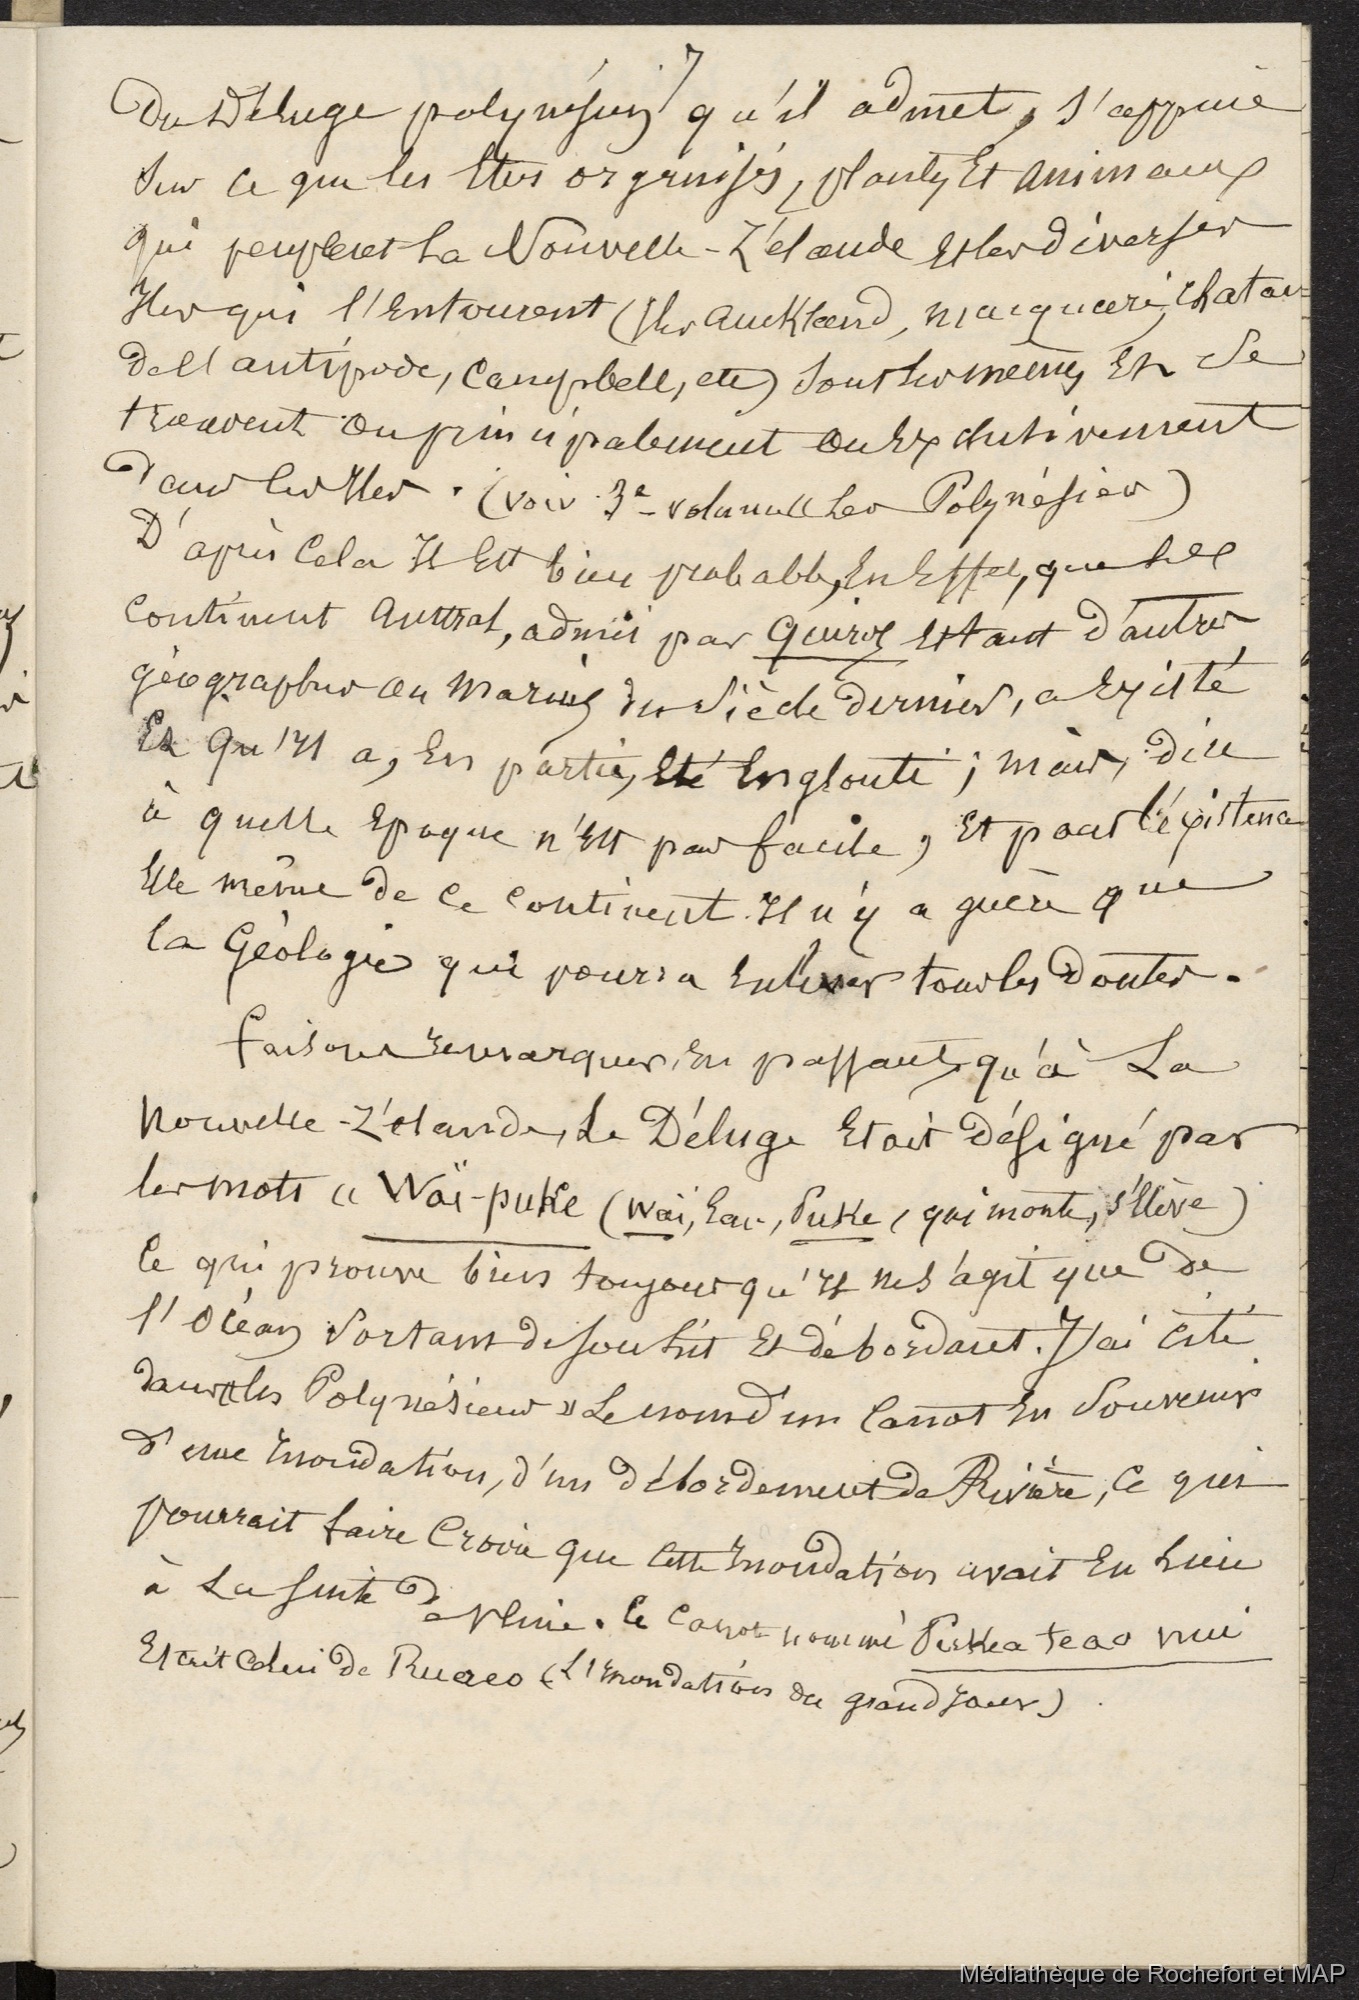 7
Du Déluge polynésien qu'il admet, s'appuie
sur ce que les Etres organisés, plantes Et animaux
qui peuplent La Nouvelle-Zélande Et les diverses
Iles qui l'Entourent (Iles Auckland, Macquarie, Chatam
de l'antipode, Campbell, etc) sont les mêmes Et se
trouvent ou principalement ou Exclusivement
dans les Iles. (voir 3e volume "Les Polynésiens)
D'après Cela Il Est bien probable, En Effet, que Le
Continent Austral, admis par Quiros Et tant d'autres
géographes ou Marins du Siècle dernier, a Existé
Et Qu'Il a, En partie, Eté Englouti ; mais, dire
à quelle Epoque n'Est pas facile, Et pour l'Existence
Elle même de ce Continent Il n'y a guère que
la Géologie qui pourra Enlever tous les Doutes.
Faisons remarquer, En passant, qu'à La
Nouvelle-Zélande, Le Déluge Etait Désigné par
les mots " Waï-puke (Waï, Eau, Puke, qui monte, s'Elève)
ce qui prouve bien toujours qu'Il ne s'agit que de
l'Océan Sortant de son Lit Et débordant. J'ai cité
dans "les Polynésiens" Le nom d'un Canot En Souvenir
d'une Inondation, d'un débordement de Rivière, Ce qui
pourrait faire Croire que cette Inondation avait Eu Lieu
à La suite de pluie. Le Canot nommé Pukea te ao nui
Etait Celui de Ruaeo (L'Inondation du grand jour)
Médiathèque de Rochefort et MAP